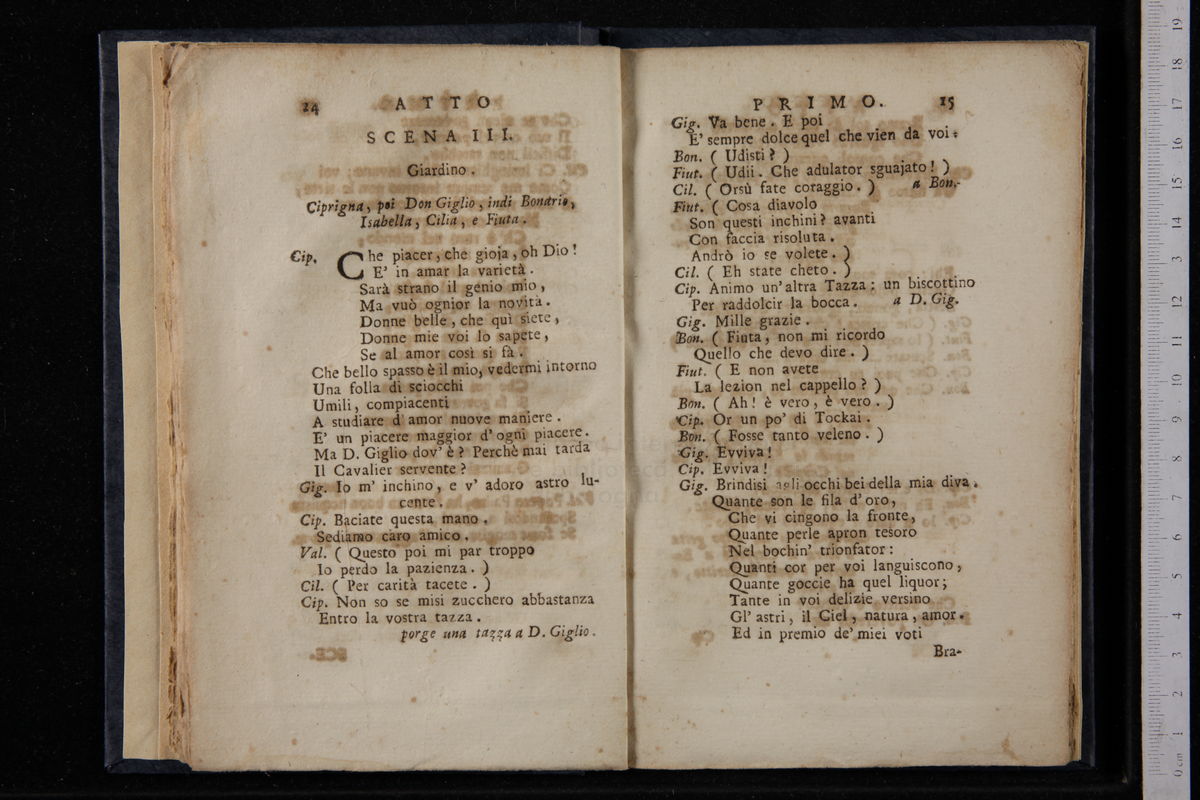 24 ATTO
SCENA III.
Giardino.
Ciprigna, poi Don Giglio, indi Bonario,
Isabella, Cilia, e Fiuta.
Cip. Che piacer, che gioja, oh Dio!
E' in amar la varietà.
Sarà strano il genio mio,
Ma vuò ognior la novità.
Donne belle, che quì siete,
Donne mie voi lo sapete,
Se al amor così si fà.
Che bello spasso è il mio, vedermi intorno
Una folla di sciocchi
Umili, compiacenti
A studiare d'amor nuove maniere.
E' un piacere maggior d'ogni piacere.
Ma D. Giglio dov' è? Perchè mai tarda
Il Cavalier servente?
Gig. Io m' inchino, e v' adoro astro lu-
cente.
Cip. Baciate questa mano.
Sediamo caro amico.
Val. ( Questo poi mi par troppo
Io perdo la pazienza. )
Cil. ( Per carità tacete. )
Cip. Non so se misi zucchero abbastanza
Entro la vostra tazza.
porge una tazza a D. Giglio.
SCE.
PRIMO. 15
Gig. Va bene. E poi
E' sempre dolce quel che vien da voi:
Bon. ( Udisti? )
Fiut. ( Udii. Che adulator sguajato! )
Cil. ( Orsù fate coraggio. ) a Bon.
Fiut. ( Cosa diavolo
Son questi inchini? avanti
Con faccia risoluta.
Andrò io se volete. )
Cil. ( Eh state cheto. )
Cip. Animo un' altra Tazza: un biscottino
Per raddolcir la bocca. a D. Gig.
Gig. Mille grazie.
Bon. ( Fiuta, non mi ricordo
Quello che devo dire. )
Fiut. ( E non avete
La lezion nel cappello? )
Bon. ( Ah! è vero, è vero. )
Cip. Or un po' di Tockai.
Bon. ( Fosse tanto veleno. )
Gig. Evviva!
Cip. Evviva!
Gig. Brindisi agli occhi bei della mia diva.
Quante son le fila d'oro,
Che vi cingono la fronte,
Quante perle apron tesoro
Nel bochin' trionfator:
Quanti cor per voi languiscono,
Quante goccie ha quel liquor;
Tante in voi delizie versino
Gl' astri, il Ciel, natura, amor.
Ed in premio de' miei voti
Bra-